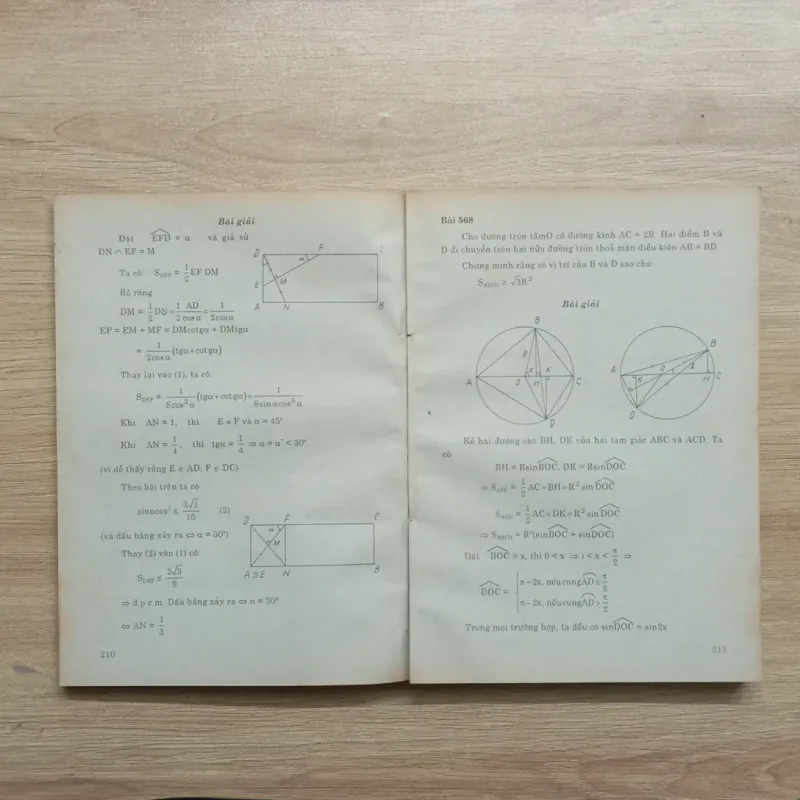 Bài giải
Đặt EFD = α và giả sử
DN ∩ EF = M
Ta có: S_DEF = 1/2 EF.DM
Rõ ràng
DM = 1/2 DN = 1/2 AD/cosα = 1/2cosα
EF = EM + MF = DMcotgα + DMtgα
= 1/2cosα (tgα + cotgα)
Thay lại vào (1), ta có:
S_DEF = 1/8cos²α (tgα + cotgα) = 1/8sinαcos³α
Khi AN = 1, thì E ≡ F và α = 45°
Khi AN = 1/4, thì tgα = 1/4 ⇒ α = α* < 30°
(vì dễ thấy rằng E ∈ AD, F ∈ DC)
Theo bài trên ta có
sinαcos³ ≤ 3√3/16 (2)
(và dấu bằng xảy ra ⇔ α = 30°)
Thay (2) vào (1) có:
S_DEF ≤ 2√3/9
⇒ đ.p.c.m. Dấu bằng xảy ra ⇔ α = 30°
⇔ AN = 1/3
D F C
α
E M
A N B
D F C
α
M
A≡E N B
210
Bài 568
Cho đường tròn tâmO có đường kính AC = 2R. Hai điểm B và
D di chuyển trên hai nửa đường tròn thoả mãn điều kiện AB = BD
Chứng minh rằng có vị trí của B và D sao cho:
S_ABCD ≥ √3R²
Bài giải
B
R
A O I K C
H
D
B
A O I
K H C
D
Kẻ hai đường cao BH, DK của hai tam giác ABC và ACD. Ta
có
BH = RsinBOC, DK = RsinDOC
⇒ S_ABC = 1/2 AC × BH = R² sin DOC
S_ACD = 1/2 AC × DK = R² sin DOC
⇒ S_ABCD = R²(sinBOC + sinDOC)
Đặt BOC = x, thì 0 < x < π/2 ⇒
DOC = { π – 2x, nếu cung AD ≤ π/2
π – 2x, nếu cung AD > π/2
Trong mọi trường hợp, ta đều có sinDOC = sin2x
211